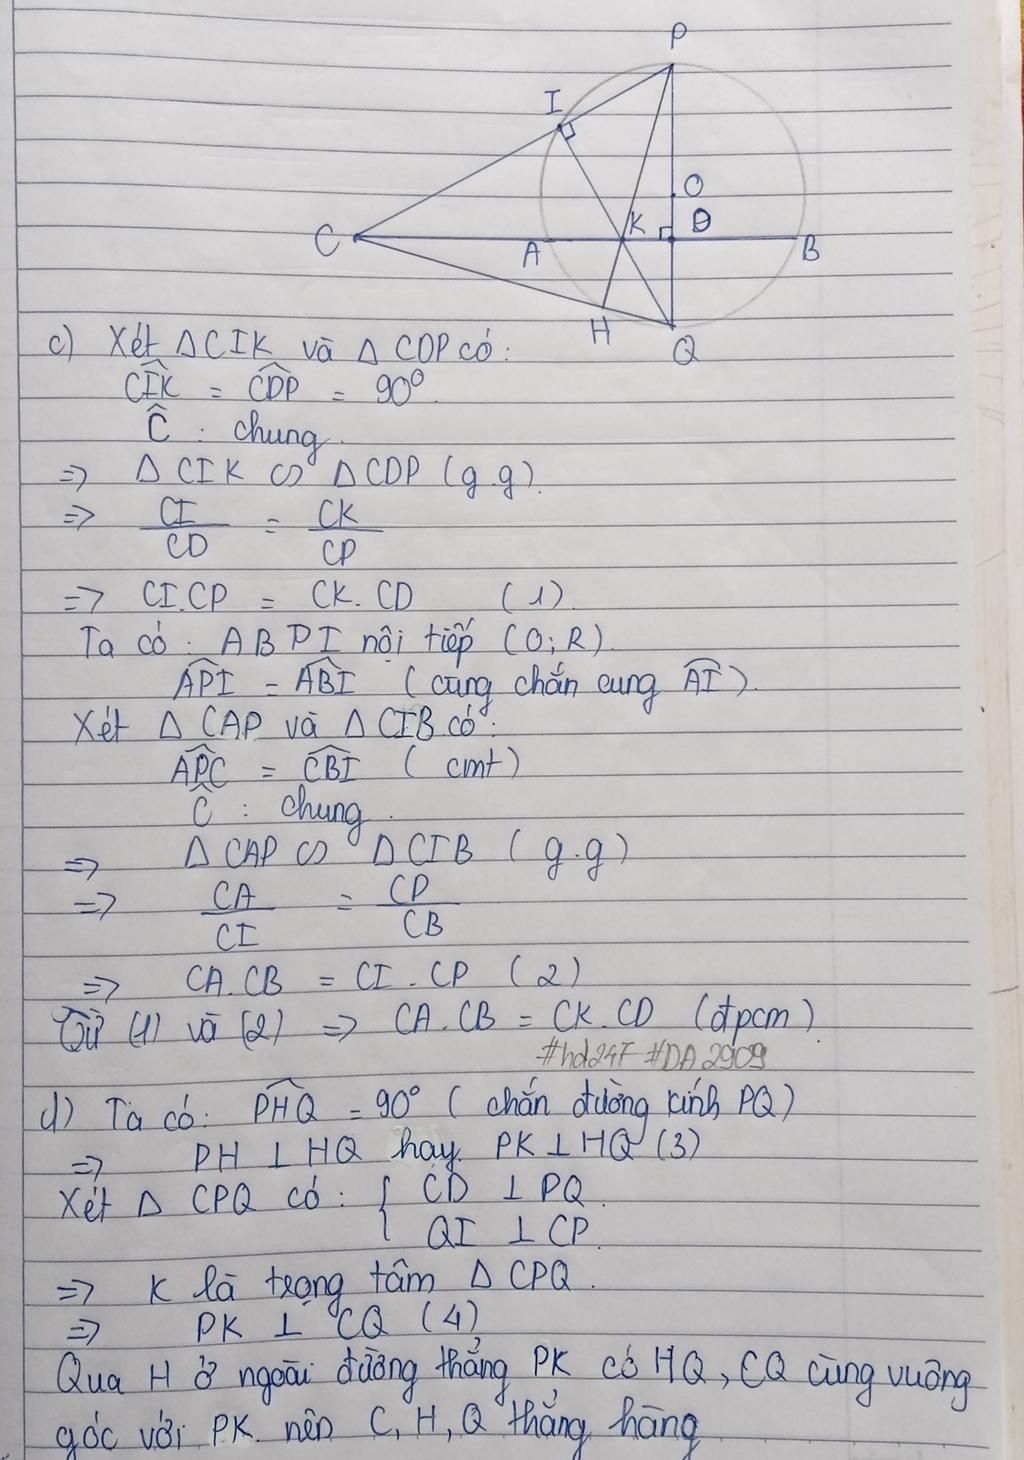 P
I
O
C
A
K
D
B
H
Q
c) Xét ΔCIK và ΔCDP có:
CIK = CDP = 90°.
Ĉ : chung.
=> ΔCIK ∽ ΔCDP (g.g).
=> CI/CD = CK/CP
=> CI.CP = CK.CD (1).
Ta có: ABPI nội tiếp (O;R).
API = ABI (cùng chắn cung AI).
Xét ΔCAP và ΔCIB có:
APC = CBI (cmt)
Ĉ : chung.
=> ΔCAP ∽ ΔCIB (g.g)
=> CA/CI = CP/CB
=> CA.CB = CI.CP (2)
Từ (1) và (2) => CA.CB = CK.CD (đpcm).
#hd247 #DA2909
d) Ta có: PHQ = 90° (chắn đường kính PQ)
=> PH ⊥ HQ hay PK ⊥ HQ (3)
Xét Δ CPQ có: { CD ⊥ PQ.
QI ⊥ CP.
=> K là trọng tâm Δ CPQ.
=> PK ⊥ CQ (4)
Qua H ở ngoài đường thẳng PK có HQ, CQ cùng vuông
góc với PK nên C, H, Q thẳng hàng